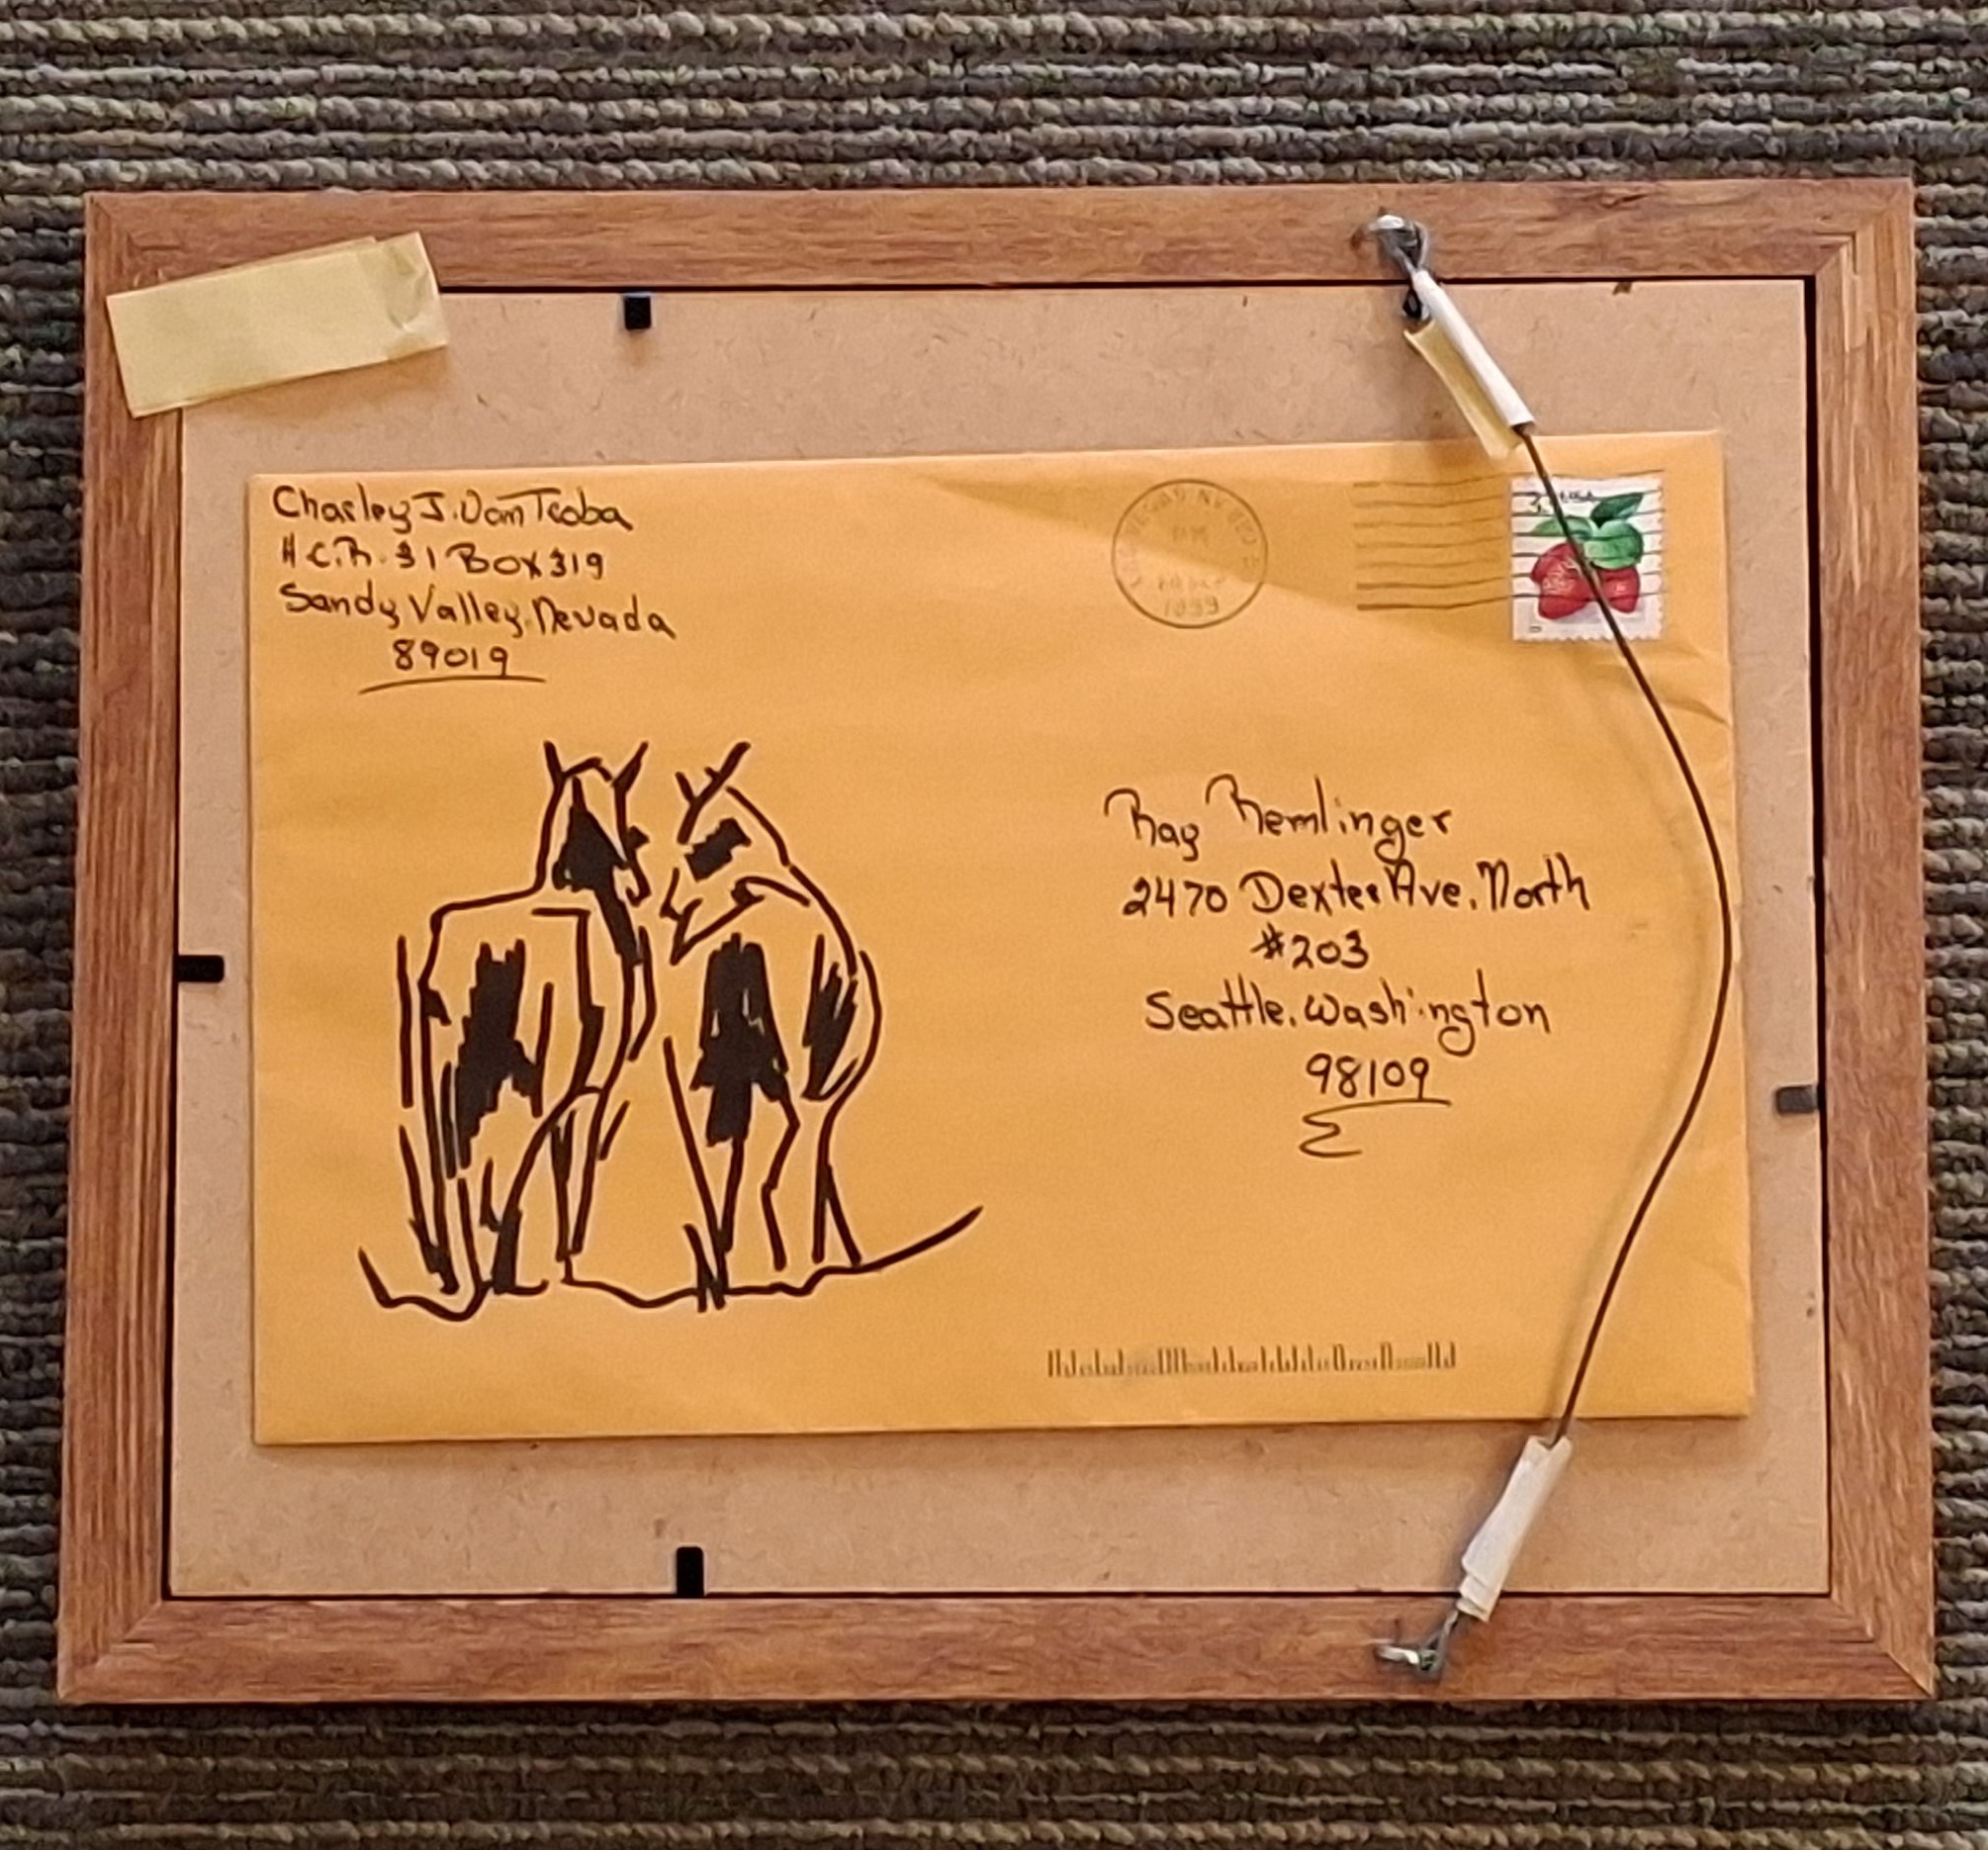 Charley J. Dom Troba
H.C.R. 31 Box 319
Sandy Valley, Nevada
89019
LAS VEGAS NV
PM
1999
Ray Remlinger
2470 Dexter Ave. North
#203
Seattle, Washington
98109